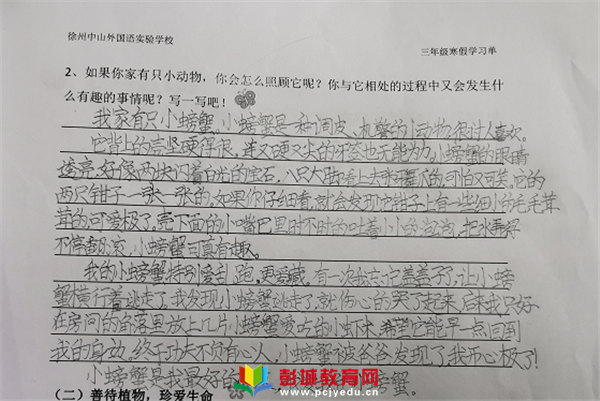 徐州中山外国语实验学校
三年级寒假学习单
2、如果你家有只小动物，你会怎么照顾它呢？你与它相处的过程中又会发生什
么有趣的事情呢？写一写吧！
我家有只小螃蟹。小螃蟹是一种调皮、机警的小动物，很讨人喜欢。
它背上的壳坚硬得很，连又硬又尖的牙签也无能为力。小螃蟹的眼睛
透亮，好像两块闪着白光的宝石。八只大脚看上去张牙舞爪的，可怕又可笑。它的
两只钳子一张一张的，如果你仔细看，就会发现它钳子上有一些细小的毛毛茸
茸的可爱极了。壳下面的小嘴巴里时不时的吐着小小的泡泡，把水弄得
不停翻滚，小螃蟹可真有趣。
我的小螃蟹特别爱乱跑，更爱藏。有一次我忘了盖盖子，让小螃
蟹横行着逃走了，我发现小螃蟹逃走了，就伤心的哭了起来，后来我只好
在房间的角落里放上几片小螃蟹爱吃的小虾米，希望它能早一点回到
我的身边。终于功夫不负有心人，小螃蟹被爸爸发现了，我开心极了！
小螃蟹是我最好的 螃蟹。
（二）善待植物，珍爱生命
彭城教育网
www.pcjyedu.cn